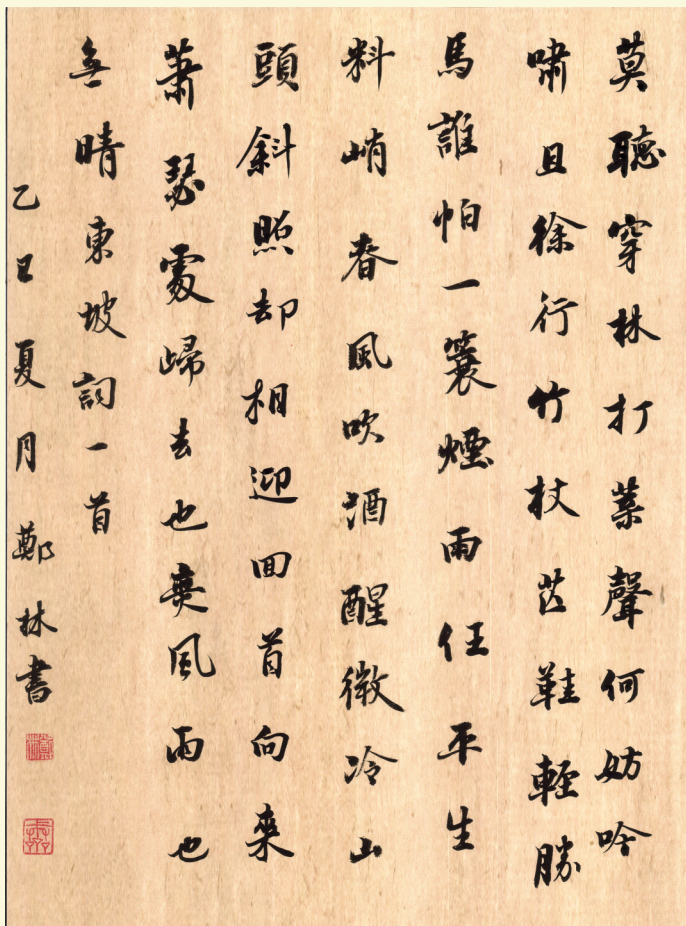 莫聽穿林打葉聲何妨吟
嘯且徐行竹杖芒鞋輕勝
馬誰怕一簑煙雨任平生
料峭春風吹酒醒微冷山
頭斜照却相迎回首向來
蕭瑟處歸去也無風雨也
無晴東坡詞一首
乙巳夏月鄭林書